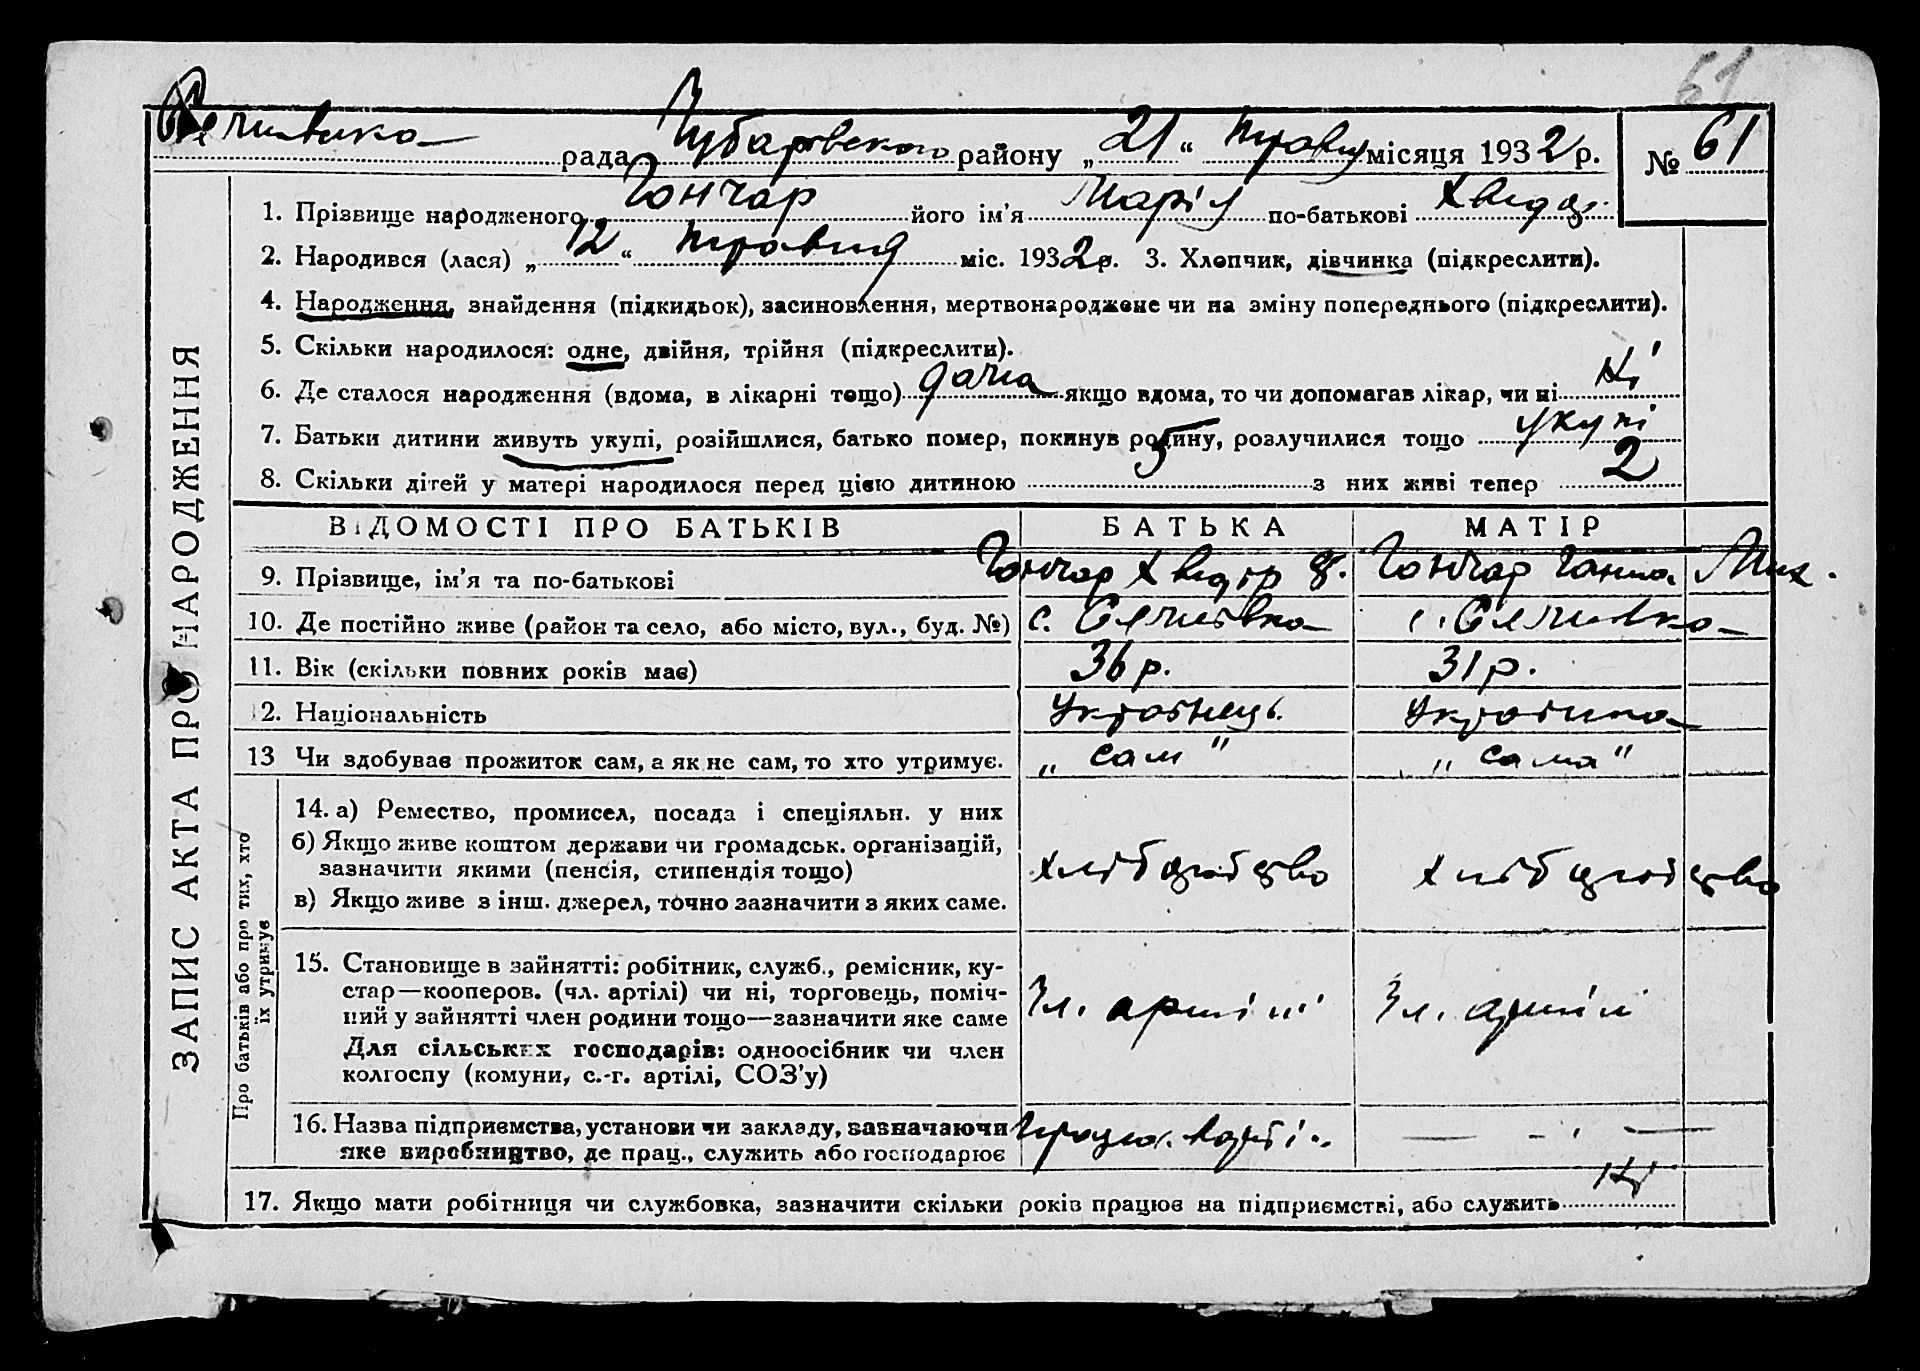 61
рада Чубарівського району „ 21 “ травня місяця 1932 р. № 61
1. Прізвище народженого Гончар його ім'я Марія по-батькові Хвед.
2. Народився (лася) „ 12 “ травня міс. 1932 р. 3. Хлопчик, дівчинка (підкреслити).
4. Народження, знайдення (підкидьок), засиновлення, мертвонароджене чи на зміну попереднього (підкреслити).
5. Скільки народилося: одне, двійня, трійня (підкреслити).
6. Де сталося народження (вдома, в лікарні тощо) дома якщо вдома, то чи допомагав лікар, чи ні ні
7. Батьки дитини живуть укупі, розійшлися, батько помер, покинув родину, розлучилися тощо укупі
8. Скільки дітей у матері народилося перед цією дитиною 5 з них живі тепер 2
ВІДОМОСТІ ПРО БАТЬКІВ БАТЬКА МАТІР
9. Прізвище, ім'я та по-батькові Гончар Хведір Гончар Ганна Мих.
10. Де постійно живе (район та село, або місто, вул., буд. №) с. с.
11. Вік (скільки повних років має) 36 р. 31 р.
12. Національність Українець. Українка
13 Чи здобуває прожиток сам, а як не сам, то хто утримує. „ сам " „ сама "
14. а) Ремество, промисел, посада і спеціяльн. у них
б) Якщо живе коштом держави чи громадськ. організацій,
зазначити якими (пенсія, стипендія тощо) хліборобство хліборобство
в) Якщо живе з інш. джерел, точно зазначити з яких саме.
15. Становище в зайнятті: робітник, служб., ремісник, ку-
стар—кооперов. (чл. артілі) чи ні, торговець, поміч-
ний у зайнятті член родини тощо—зазначити яке саме Чл. артілі Чл. артілі
Для сільських господарів: одноосібник чи член
колгоспу (комуни, с.-г. артілі, СОЗ'у)
16. Назва підприємства, установи чи закладу, зазначаючи
яке виробництво, де прац., служить або господарює
17. Якщо мати робітниця чи службовка, зазначити скільки років працює на підприємстві, або служить ні
ЗАПИС АКТА ПРО НАРОДЖЕННЯ
Про батьків або про тих, хто
їх утримує